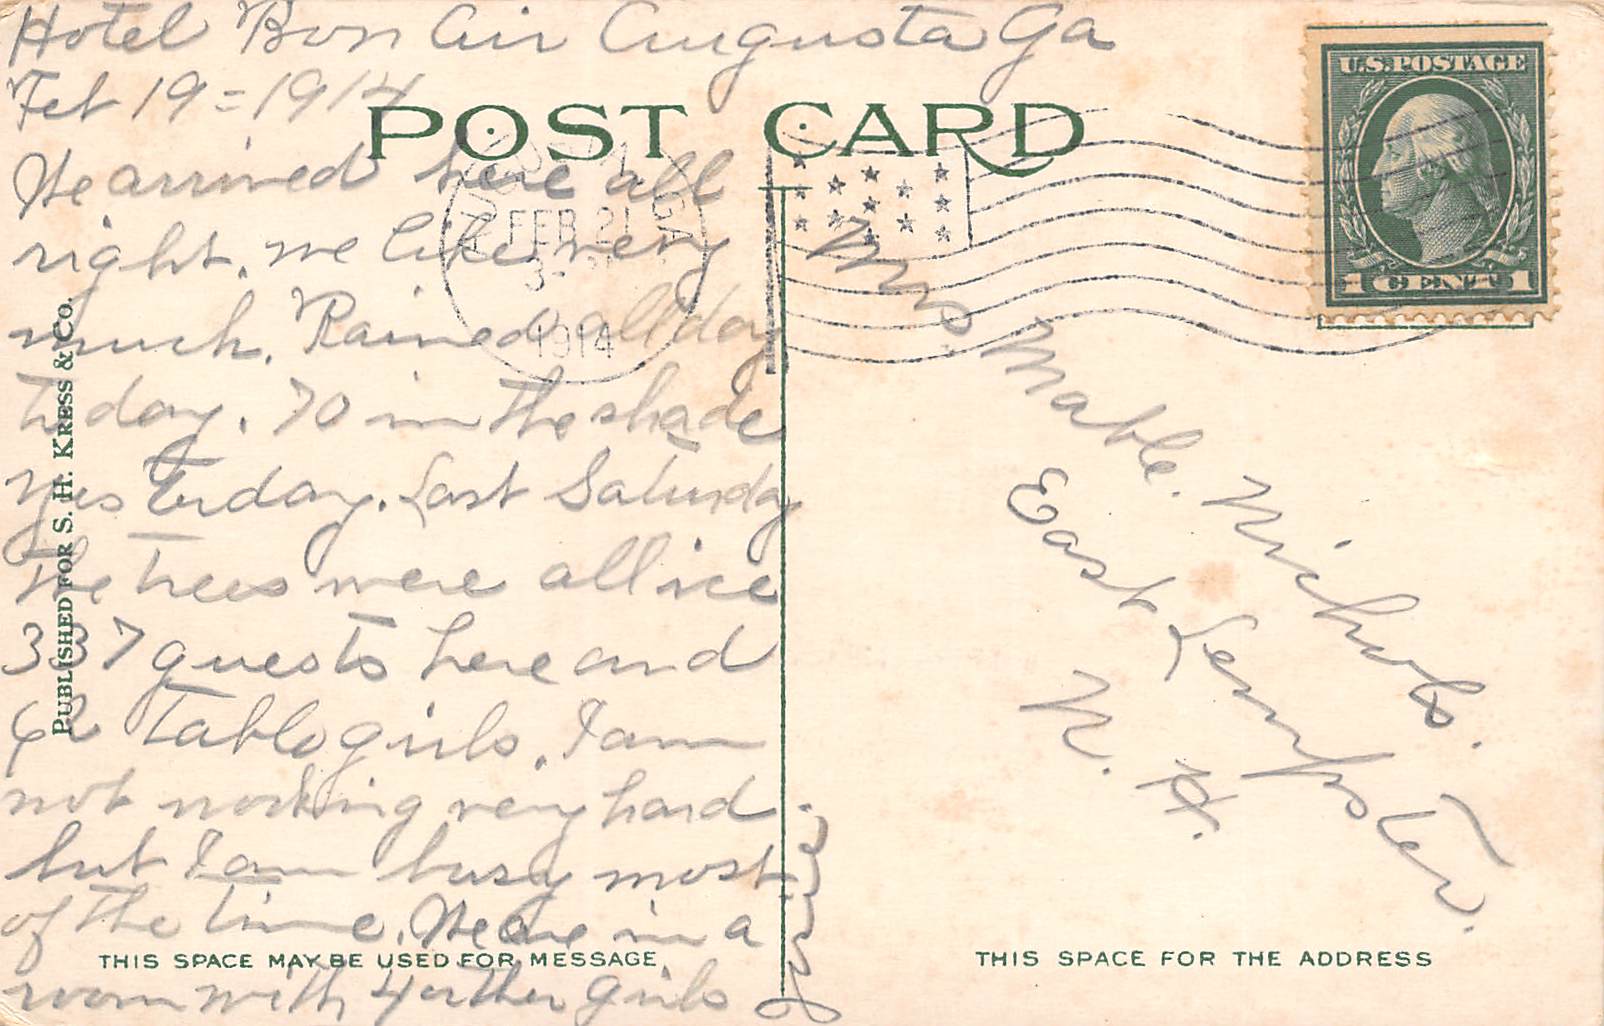 Hotel Bon Air Augusta Ga
Feb 19 = 1914
POST CARD
We arrived here all
right. we like very
much. Rained all day
to day. 70 in the shade
yesterday. Last Saturday
the trees were all ice
337 guests here and
62 Table girls. I am
not working very hard
but I am busy most
of the time. We are in a
room with 4 other girls
PUBLISHED FOR S. H. KRESS & CO.
THIS SPACE MAY BE USED FOR MESSAGE
AUGUSTA GA
FEB 21
1914
U.S. POSTAGE
1 CENT 1
Mrs Mable. Nichols.
East Lempster.
N. H.
THIS SPACE FOR THE ADDRESS